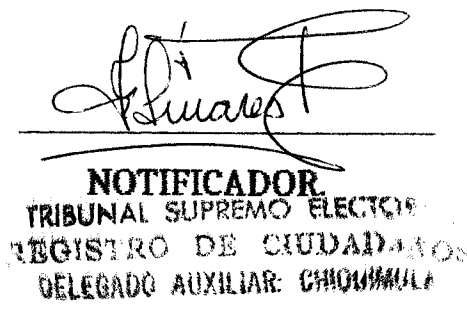 Linares
NOTIFICADOR.
TRIBUNAL SUPREMO
REGISTRO DE CIUDADANOS
DELEGADO AUXILIAR: CHIQUIMULA